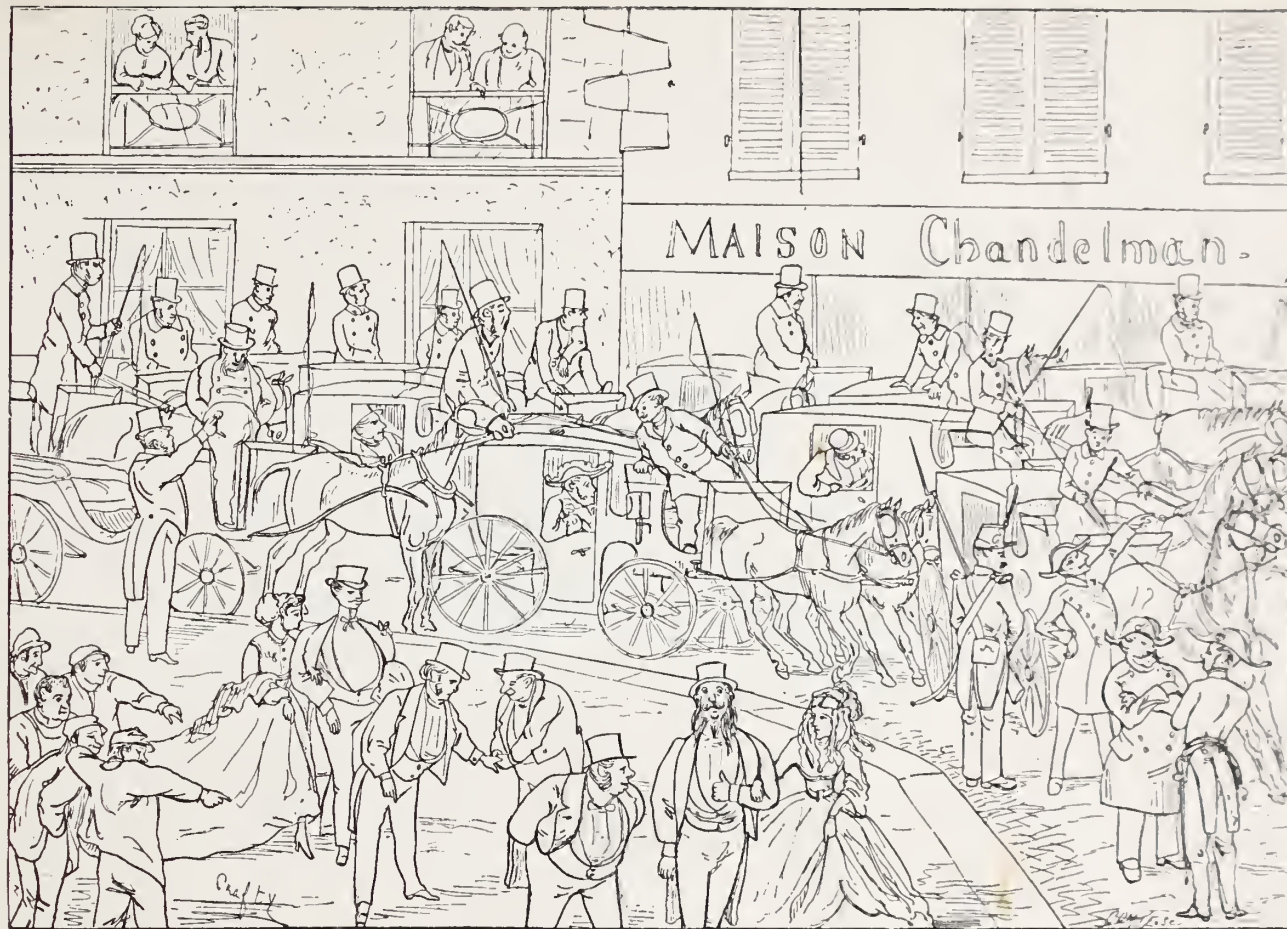 MAISON Chandelman.
Crafty